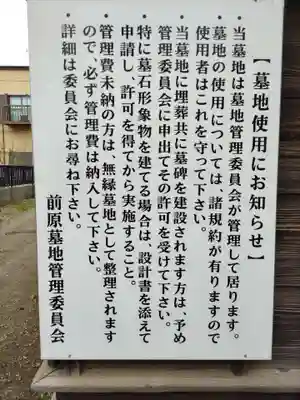 【墓地使用にお知らせ】
・当墓地は墓地管理委員会が管理して居ります。
・墓地の使用については、諸規約が有りますので
使用者はこれを守って下さい。
・当墓地に埋葬共に墓碑を建設されます方は、予め
管理委員会に申出てその許可を受けて下さい。
・特に墓石形象物を建てる場合は、設計書を添えて
申請し、許可を得てから実施すること。
・管理費未納の方は、無縁墓地として整理されます
ので、必ず管理費は納入して下さい。
・詳細は委員会にお尋ね下さい。
前原墓地管理委員会